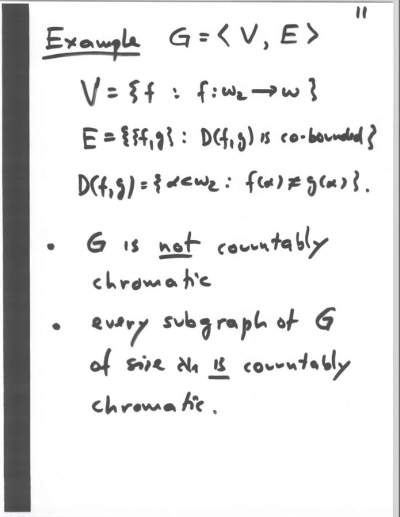 11
Example G = < V, E >
V = {f : f: ω₂ → ω }
E = {{f,g} : D(f,g) is co-bounded}
D(f,g) = {α<ω₂ : f(α) ≠ g(α)}.
• G is not countably
chromatic
• every subgraph of G
of size ℵ₁ is countably
chromatic.